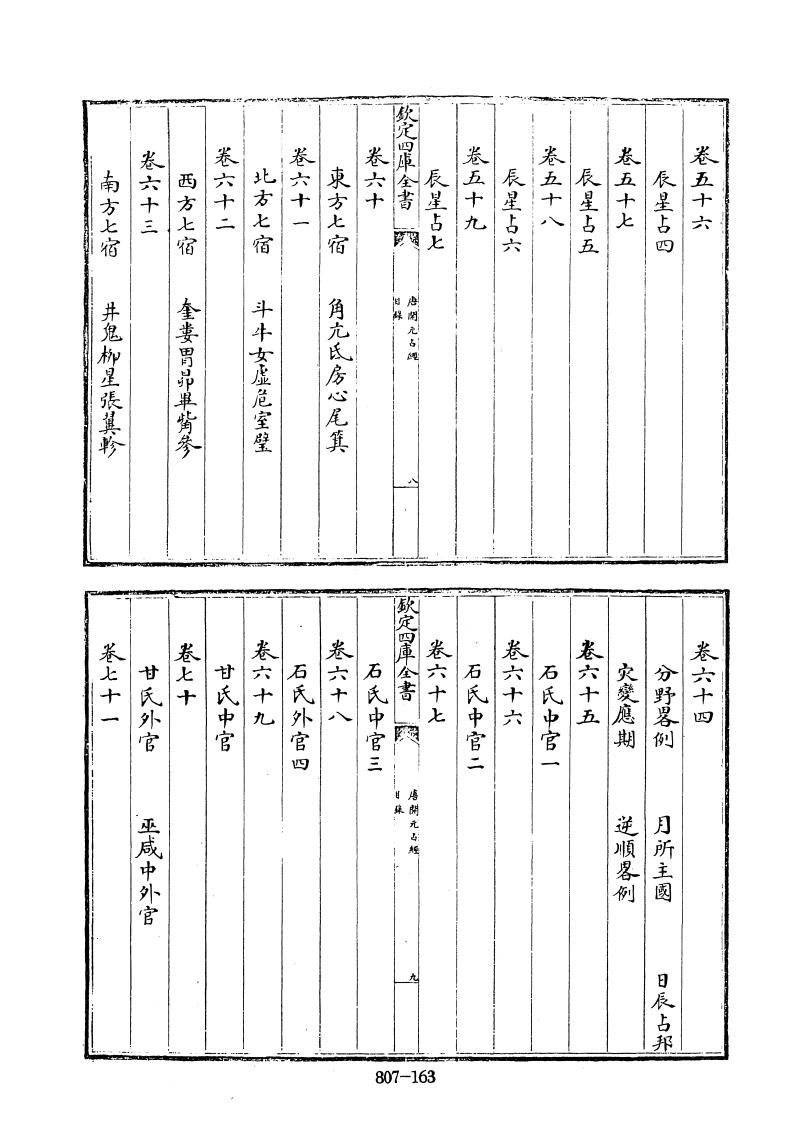 卷五十六
辰星占四
卷五十七
辰星占五
卷五十八
辰星占六
卷五十九
辰星占七
欽定四庫全書
唐開元占經
目錄
八
卷六十
東方七宿　角亢氐房心尾箕
卷六十一
北方七宿　斗牛女虛危室壁
卷六十二
西方七宿　奎婁胃昴畢觜參
卷六十三
南方七宿　井鬼柳星張翼軫
卷六十四
分野畧例　月所主國　日辰占邦
灾變應期　逆順畧例
卷六十五
石氏中官一
卷六十六
石氏中官二
卷六十七
欽定四庫全書
唐開元占經
目錄
九
石氏中官三
卷六十八
石氏外官四
卷六十九
甘氏中官
卷七十
甘氏外官　巫咸中外官
卷七十一
807-163